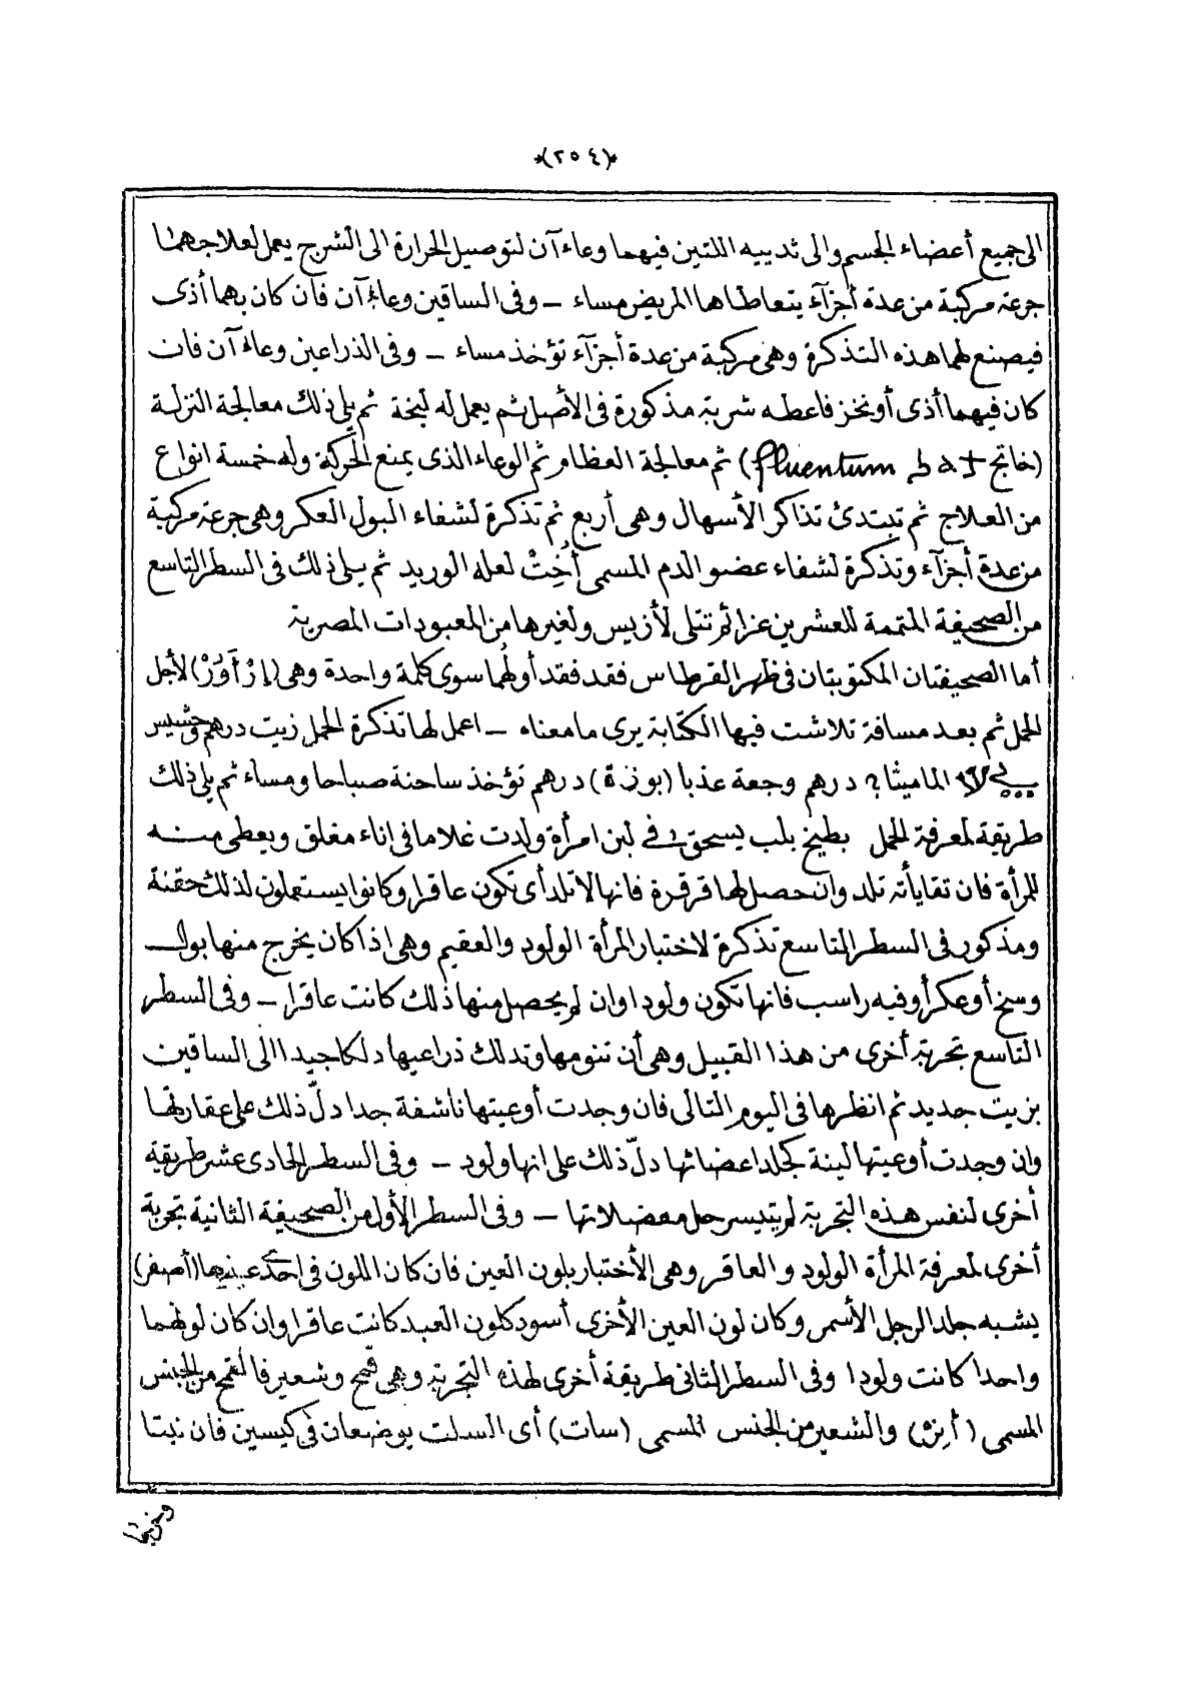 *(٢٥٤)*
الى جميع أعضاء الجسم والى ثدييه اللتين فيهما وعاءآن لتوصيل الحرارة الى الشرج يعمل لعلاجهما
جرعة مركبة من عدة أجزآء يتعاطاها المريض مساء — وفى الساقين وعاءآن فان كان بهما أذى
فيصنع لهما هذه التذكرة وهى مركبة من عدة أجزآء تؤخذ مساء — وفى الذراعين وعاءآن فان
كان فيهما أذى أو نخز فاعطه شربة مذكورة فى الأصل ثم يعمل له لبخة ثم يلى ذلك معالجة النزلة
(خاتج fluentum) ثم معالجة العظام ثم الوعاء الذى يمنع الحركة وله خمسة انواع
من العلاج ثم تبتدئ تذاكر الأسهال وهى أربع ثم تذكرة لشفاء البول العكر وهى جرعة مركبة
من عدة أجزآء وتذكرة لشفاء عضو الدم المسمى أُخِتْ لعله الوريد ثم يلى ذلك فى السطر التاسع
من الصحيفة المتممة للعشرين عزائم تتلى لأزيس ولغيرها من المعبودات المصرية
أما الصحيفتان المكتوبتان فى ظهر القرطاس فقد فقد أولهما سوى كلمة واحدة وهى (إزْ أَوُرْ) لأجل
الحمل ثم بعد مسافة تلاشت فيها الكتابة يرى ما معناه — اعمل لها تذكرة الحمل زيت درهم وحشيش
الماميثا؟ درهم وجعة عذبا (بوزة) درهم تؤخذ ساخنة صباحا ومساء ثم يلى ذلك
طريقة لمعرفة الحمل بطيخ بلب يسحق فى لبن امرأة ولدت غلاما فى اناء مغلق ويعطى منه
للمرأة فان تقايأته تلد وان حصل لها قرقرة فانها لا تلد أى تكون عاقرا وكانوا يستعملون لذلك حقنة
ومذكور فى السطر التاسع تذكرة لاختبار المرأة الولود والعقيم وهى اذا كان يخرج منها بول
وسخ أو عكر أو فيه راسب فانها تكون ولودا وان لم يحصل منها ذلك كانت عاقرا — وفى السطر
التاسع تجربة أخرى من هذا القبيل وهى أن تنومها وتدلك ذراعيها دلكا جيدا الى الساقين
بزيت جديد ثم انظرها فى اليوم التالى فان وجدت أوعيتها ناشفة جدا دلّ ذلك على عقارتها
وان وجدت أوعيتها لينة كجلد اعضائها دلّ ذلك على انها ولود — وفى السطر الحادى عشر طريقة
أخرى لنفس هذه التجربة لم يتيسر حل معضلاتها — وفى السطر الأول من الصحيفة الثانية تجربة
أخرى لمعرفة المرأة الولود والعاقر وهى الأختبار بلون العين فان كان اللون فى احدى عينيها (أصفر)
يشبه جلد الرجل الأسمر وكان لون العين الأخرى أسود كلون العبد كانت عاقرا وان كان لونهما
واحدا كانت ولودا وفى السطر الثانى طريقة أخرى لهذه التجربة وهى قمح وشعير فالقمح من الجنس
المسمى (أنزه) والشعير من الجنس المسمى (سات) أى السلت يوضعان فى كيسين فان نبتا